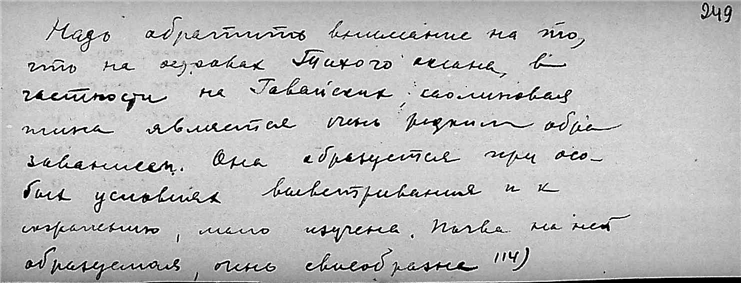 249
Надо обратить внимание на то,
что на островах Тихого океана, в
частности на Гавайских, каолиновая
глина является очень редким обра
зованием. Она образуется при осо-
бых условиях выветривания и к
сожалению, мало изучена. Почва на ней
образуемая, очень своеобразна 114)